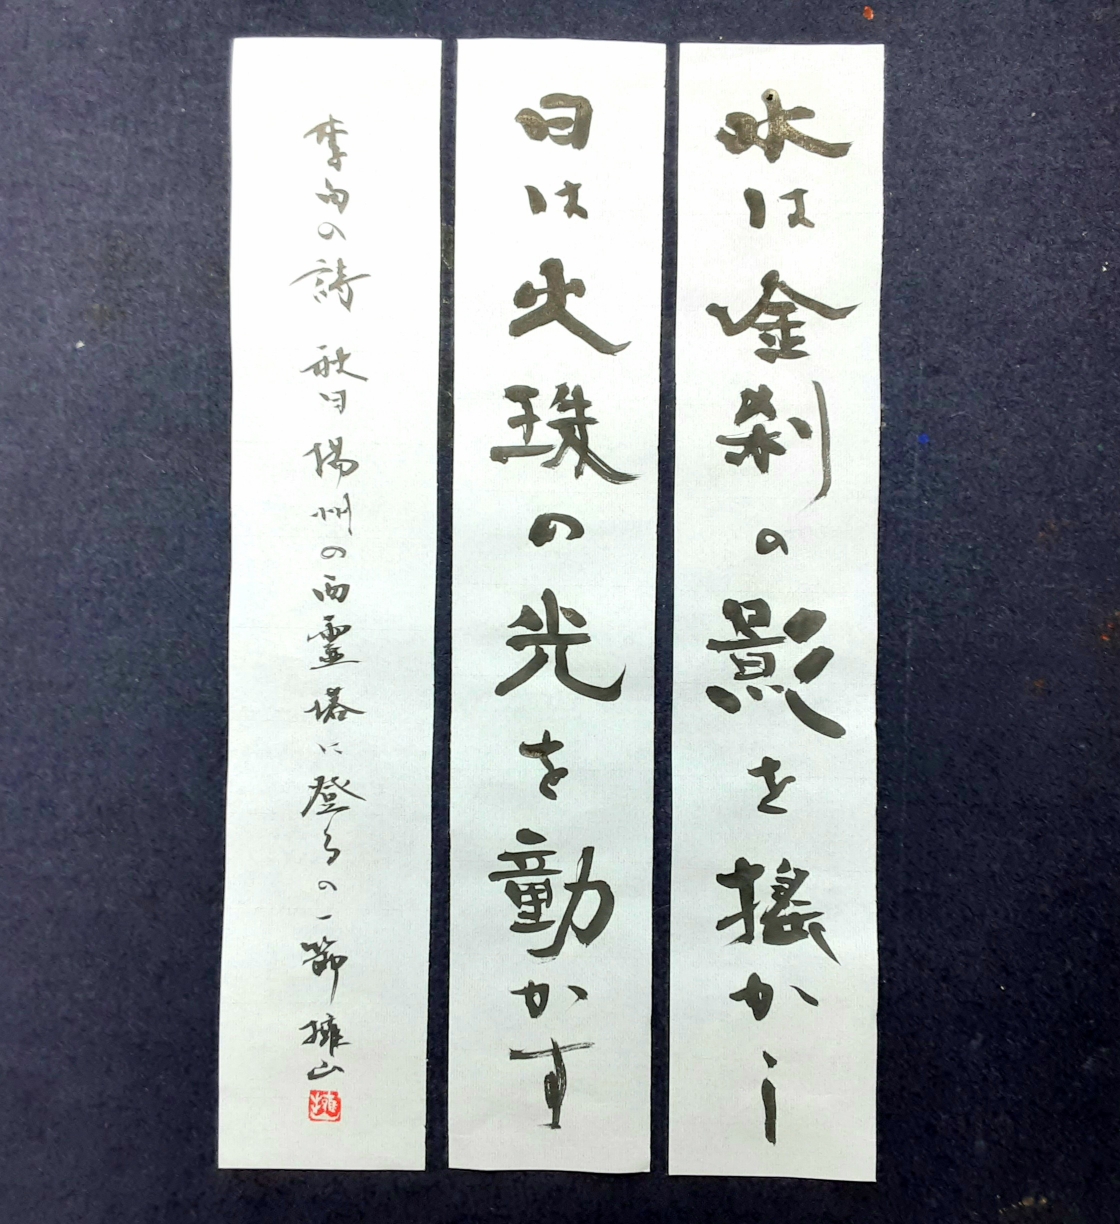 水は金刹の影を搖かし
日は火珠の光を動かす
李白の詩 秋日揚州の西霊塔に登るの一節 擁山